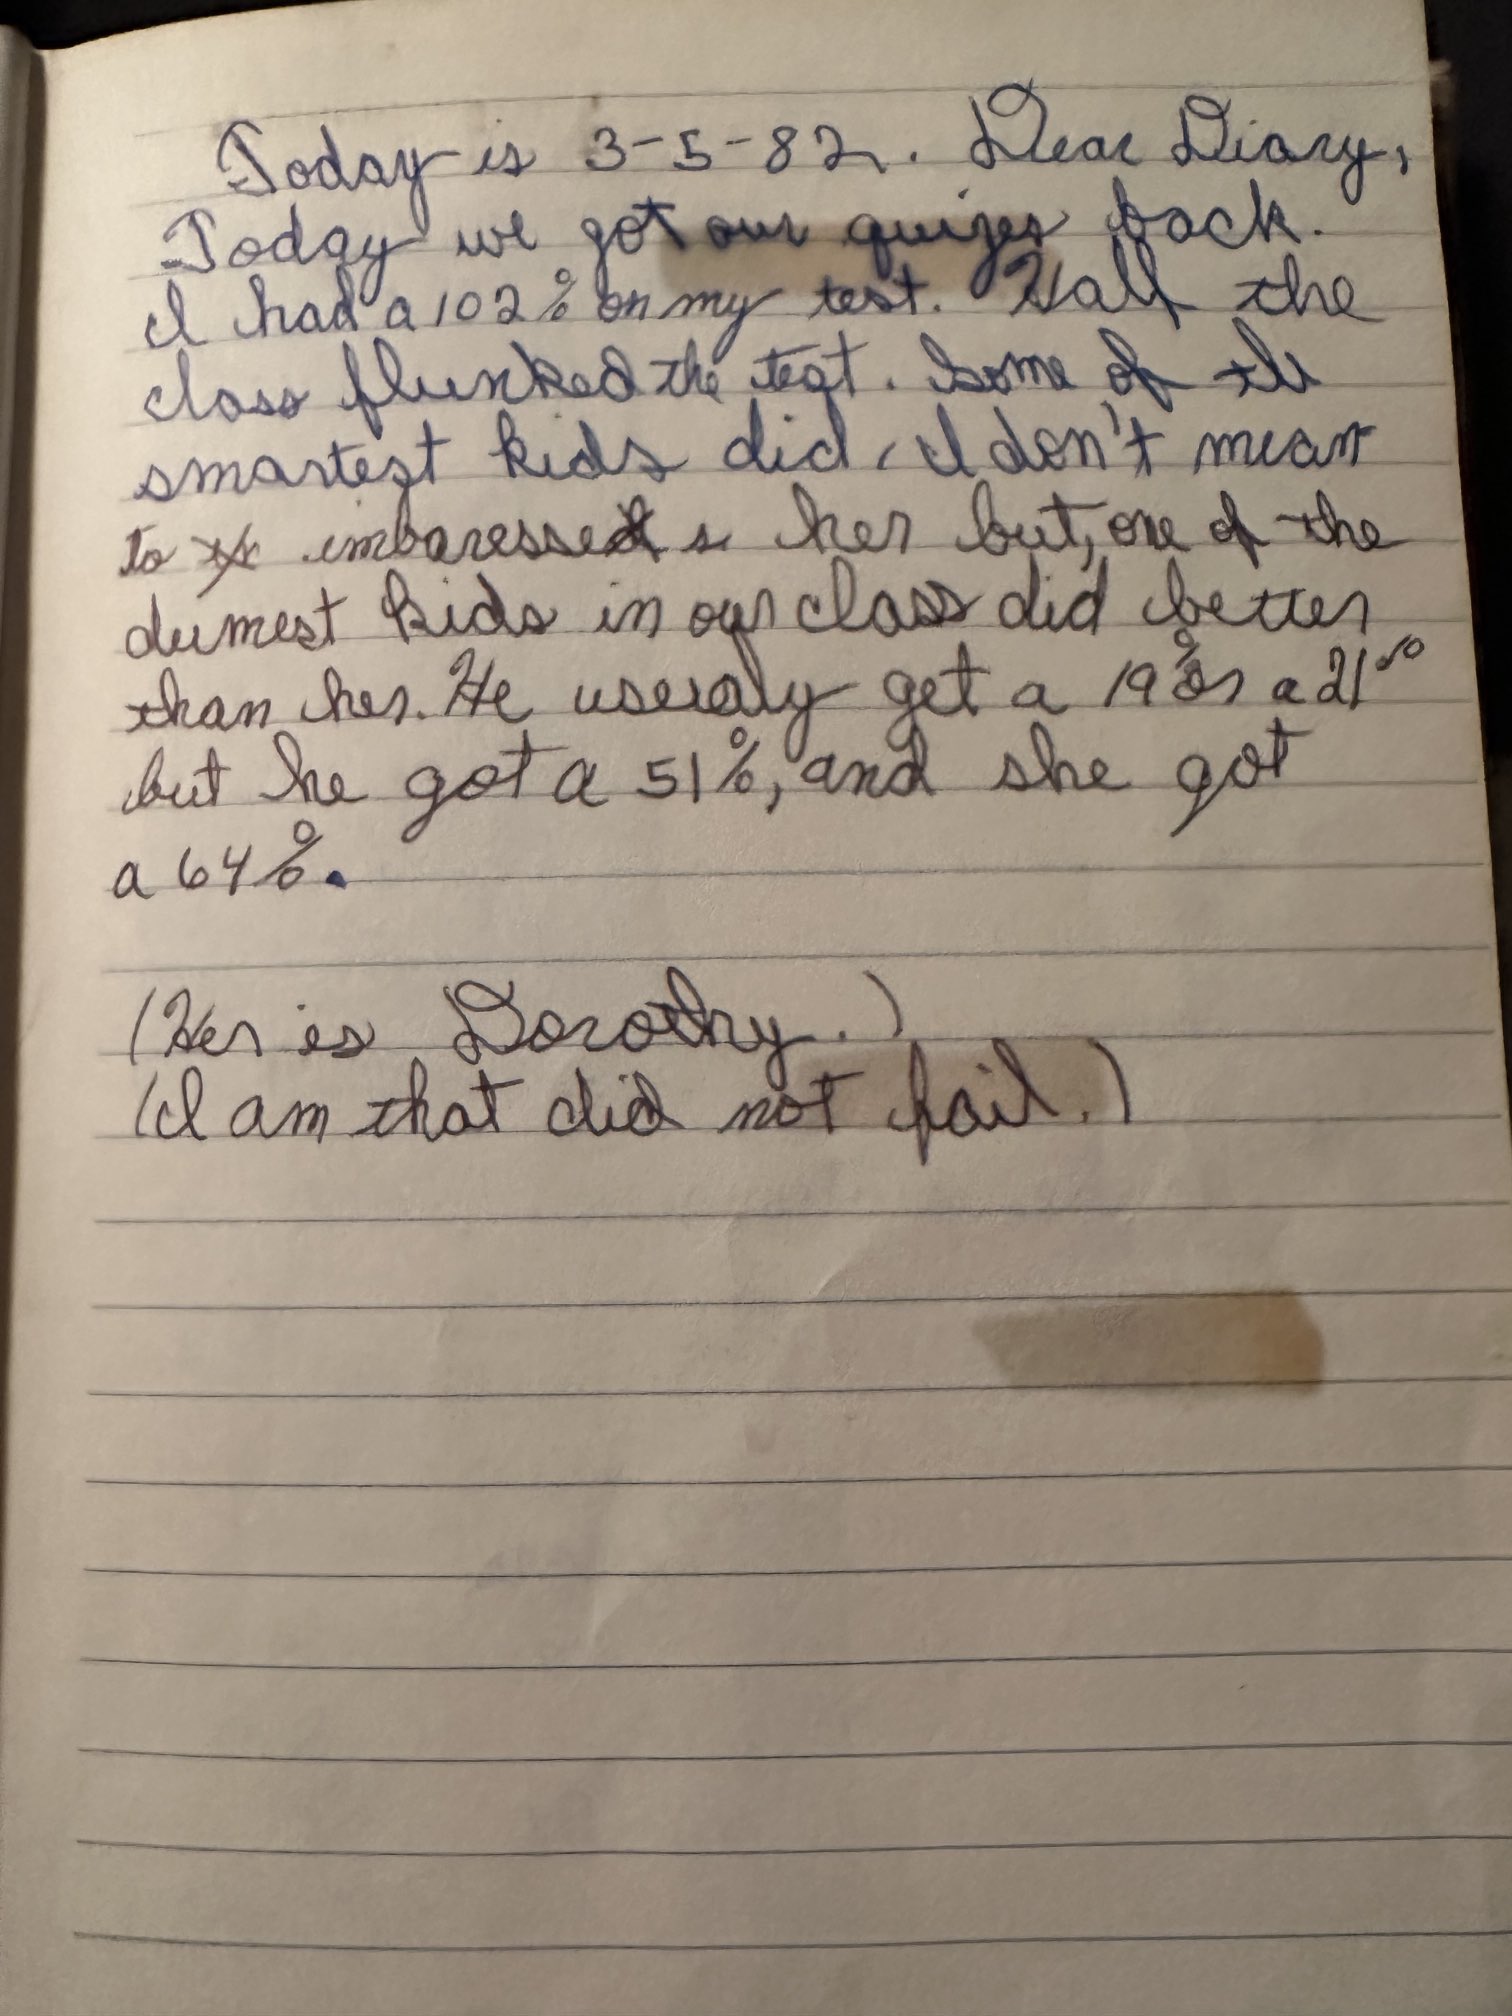 Today is 3-5-82. Dear Diary,
Today we got our quizes back.
I had a 102% on my test. Half the
class flunked the test. Some of the
smartest kids did, I don't mean
to imbaresses her but, one of the
dumest kids in our class did better
than her. He useualy get a 19% or a 21%
but he got a 51%, and she got
a 64%.
(Her is Dorothy.)
(I am that did not fail.)